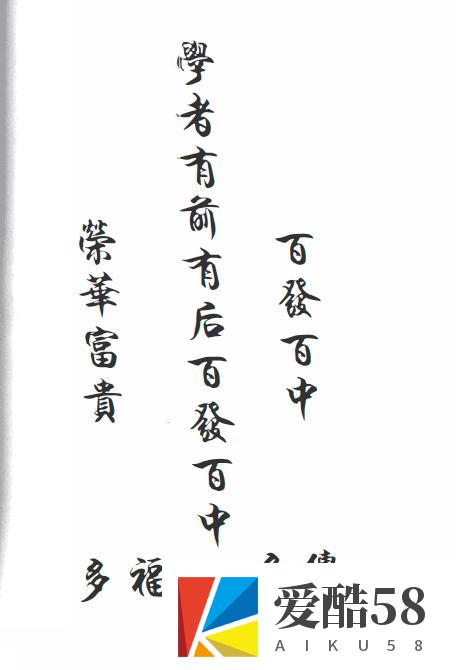 百發百中
學者有前有后百發百中
榮華富貴
福多
爱酷58
AIKU58